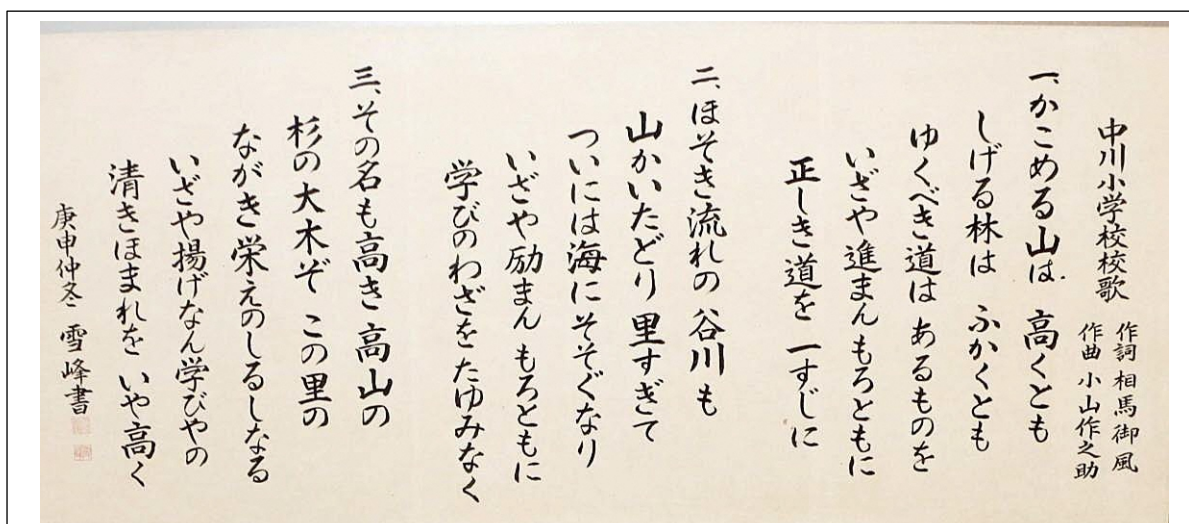 中川小学校校歌
作詞 相馬御風
作曲 小山作之助
一、かこめる山は 高くとも
しげる林は ふかくとも
ゆくべき道は あるものを
いざや進まん もろともに
正しき道を 一すじに
二、ほそき流れの 谷川も
山かいたどり 里すぎて
ついには海に そそぐなり
いざや励まん もろともに
学びのわざを たゆみなく
三、その名も高き 高山の
杉の大木ぞ この里の
ながき栄えの しるしなる
いざや揚げなん 学びやの
清きほまれを いや高く
庚申仲冬 雪峰書